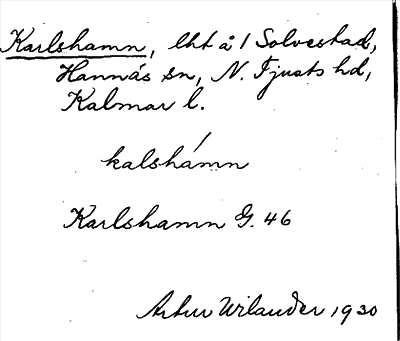 Karlshamn, lht å 1 Solvestad,
Hannäs sn, N. Tjusts hd,
Kalmar l.
kalshámn
Karlshamn G. 46
Artur Wilander 1930